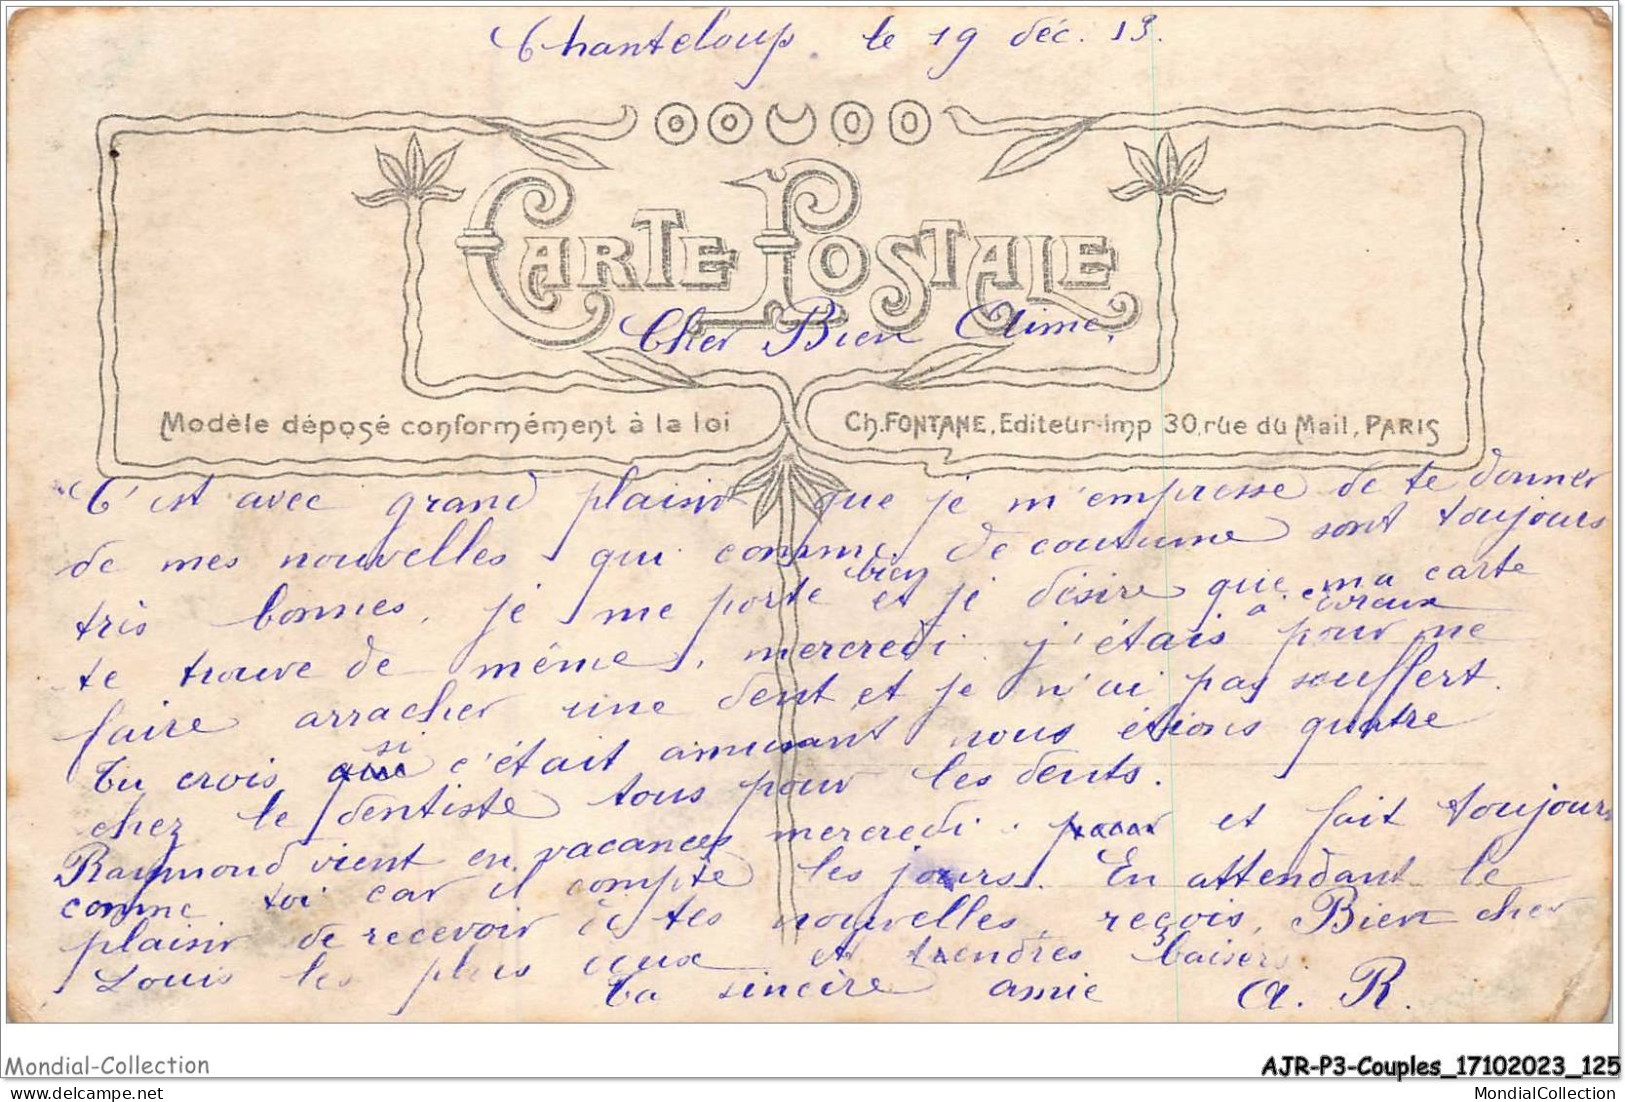 Chanteloup, le 19 déc. 13.
CARTE POSTALE
Cher Bien Aimé,
Modèle déposé conformément à la loi
Ch. FONTANE, Editeur-Imp 30, rue du Mail, PARIS
C'est avec grand plaisir que je m'empresse de te donner
de mes nouvelles qui comme de coutume sont toujours
très bonnes, je me porte bien et je désire que ma carte
te trouve de même, mercredi j'étais à évreux pour me
faire arracher une dent et je n'ai pas souffert.
Tu crois si c'était amusant nous étions quatre
chez le dentiste tous pour les dents.
Raymond vient en vacances mercredi. et fait toujours
comme toi car il compte les jours. En attendant le
plaisir de recevoir de tes nouvelles, reçois, Bien cher
Louis les plus doux et tendres baisers.
Ta sincère amie A. R.
Mondial-Collection
AJR-P3-Couples_17102023_125
MondialCollection